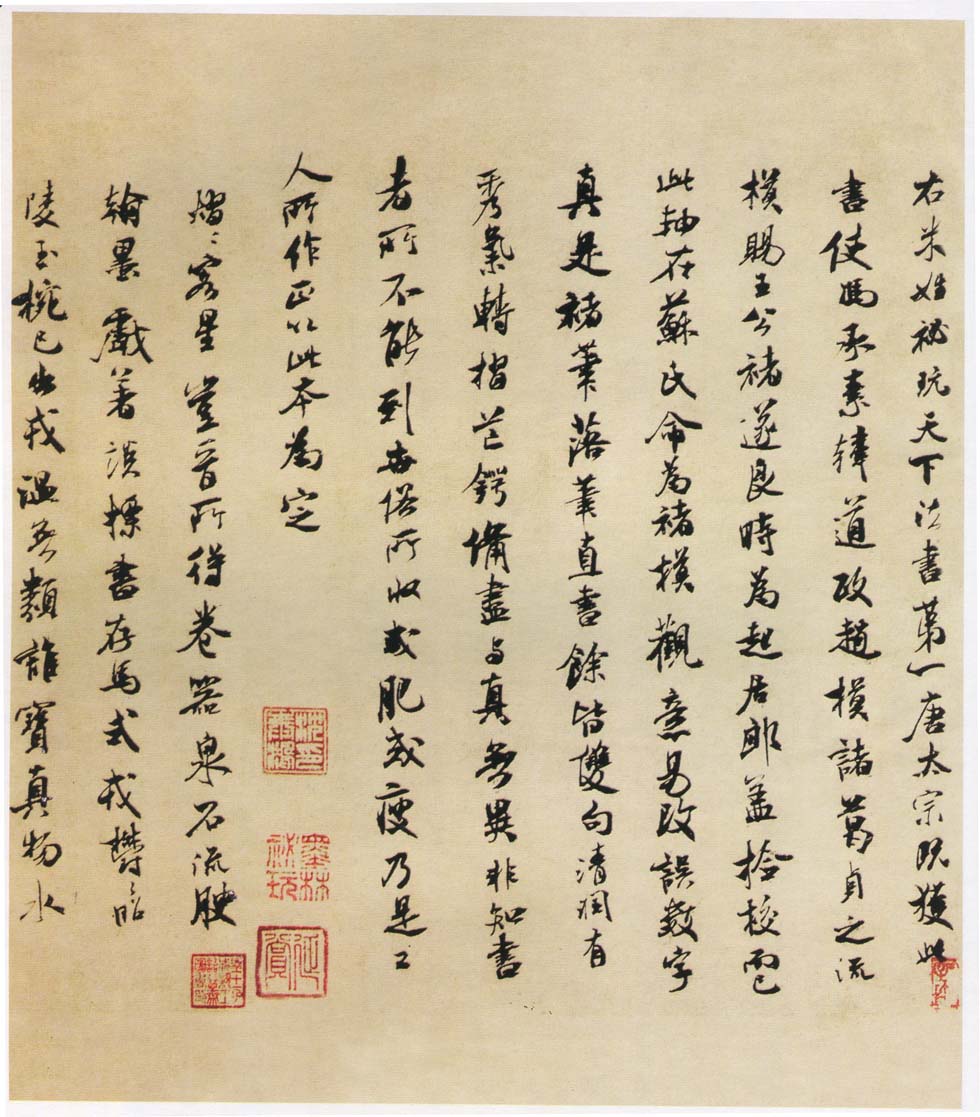 右米姓秘玩天下法書第一唐太宗既獲此
書使馮承素韓道政趙模諸葛貞之流
模賜王公褚遂良時為起居郎蓋撿校而已
此軸在蘇氏命為褚模觀意易改誤數字
真是褚筆落筆直書餘皆雙句清潤有
秀氣轉摺芒鍔備盡与真無異非知書
者所不能到世俗所收或肥或瘦乃是工
人所作正以此本為定
熠〻客星豈晉所得養器泉石流腴
翰墨戲著談標書存馬式戎欝〻昭
陵玉椀已出戎溫無類誰寶真物水
墨林祕玩